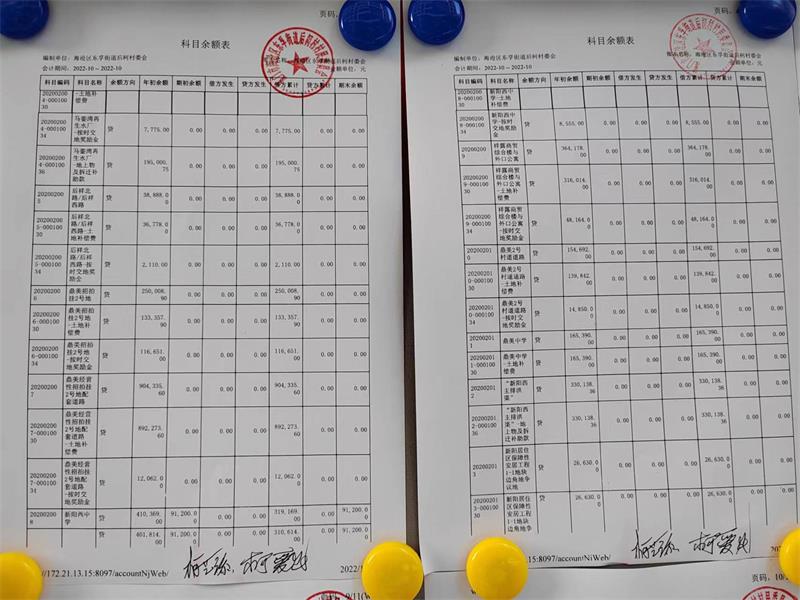 页码:
科目余额表
编制单位: 海沧区东孚街道后柯村村委会
会计期间: 2022-10 ~ 2022-10
金额单位: 元
科目编码 科目名称 余额方向 年初余额 期初余额 借方发生 贷方发生 借方累计 贷方累计 期末余额
20200204-00010030 -土地补偿费
20200204-00010034 马銮湾再生水厂-按时交地奖励金 贷 7,775.00 0.00 0.00 0.00 7,775.00 0.00 0.00
20200204-00010036 马銮湾再生水厂-地上物及拆迁补助款 贷 195,000.75 0.00 0.00 0.00 195,000.75 0.00 0.00
20200205 后祥北路/后祥西路 贷 38,888.00 0.00 0.00 0.00 38,888.00 0.00 0.00
20200205-00010030 后祥北路/后祥西路-土地补偿费 贷 36,778.00 0.00 0.00 0.00 36,778.00 0.00 0.00
20200205-00010034 后祥北路/后祥西路-按时交地奖励金 贷 2,110.00 0.00 0.00 0.00 2,110.00 0.00 0.00
20200206 鼎美招拍挂2号地 贷 250,008.90 0.00 0.00 0.00 250,008.90 0.00 0.00
20200206-00010030 鼎美招拍挂2号地-土地补偿费 贷 133,357.90 0.00 0.00 0.00 133,357.90 0.00 0.00
20200206-00010034 鼎美招拍挂2号地-按时交地奖励金 贷 116,651.00 0.00 0.00 0.00 116,651.00 0.00 0.00
20200207 鼎美经营性招拍挂2号地配套道路 贷 904,335.60 0.00 0.00 0.00 904,335.60 0.00 0.00
20200207-00010030 鼎美经营性招拍挂2号地配套道路-土地补偿费 贷 892,273.60 0.00 0.00 0.00 892,273.60 0.00 0.00
20200207-00010034 鼎美经营性招拍挂2号地配套道路-按时交地奖励金 贷 12,062.00 0.00 0.00 0.00 12,062.00 0.00 0.00
20200208 新阳西中学 贷 410,369.00 91,200.00 0.00 0.00 319,169.00 0.00 91,200.00
贷 401,814.00 91,200.00 0.00 0.00 310,614.00 0.00 91,200.00
//172.21.13.15:8097/accountNjWeb/
2022/1
9/11
页码:
科目余额表
编制单位: 海沧区东孚街道后柯村村委会
会计期间: 2022-10 ~ 2022-10
金额单位: 元
科目编码 科目名称 余额方向 年初余额 期初余额 借方发生 贷方发生 借方累计 贷方累计 期末余额
20200208-00010030 新阳西中学-土地补偿费
20200208-00010034 新阳西中学-按时交地奖励金 贷 8,555.00 0.00 0.00 0.00 8,555.00 0.00 0.00
20200209 祥露商贸综合楼与外口公寓 贷 364,178.00 0.00 0.00 0.00 364,178.00 0.00 0.00
20200209-00010030 祥露商贸综合楼与外口公寓-土地补偿费 贷 316,014.00 0.00 0.00 0.00 316,014.00 0.00 0.00
20200209-00010034 祥露商贸综合楼与外口公寓-按时交地奖励金 贷 48,164.00 0.00 0.00 0.00 48,164.00 0.00 0.00
202002010 鼎美2号村道道路 贷 154,692.00 0.00 0.00 0.00 154,692.00 0.00 0.00
202002010-00010030 鼎美2号村道道路-土地补偿费 贷 139,842.00 0.00 0.00 0.00 139,842.00 0.00 0.00
202002010-00010034 鼎美2号村道道路-按时交地奖励金 贷 14,850.00 0.00 0.00 0.00 14,850.00 0.00 0.00
202002011 鼎美中学 贷 165,390.00 0.00 0.00 0.00 165,390.00 0.00 0.00
202002011-00010030 鼎美中学-土地补偿费 贷 165,390.00 0.00 0.00 0.00 165,390.00 0.00 0.00
202002012 "新阳西主排洪渠" 贷 330,138.36 0.00 0.00 0.00 330,138.36 0.00 0.00
202002012-00010036 "新阳西主排洪渠"-地上物及拆迁补助款 贷 330,138.36 0.00 0.00 0.00 330,138.36 0.00 0.00
202002013 新阳居住区保障性安居工程1-1地块边角地争议地 贷 26,630.00 0.00 0.00 0.00 26,630.00 0.00 0.00
202002013-00010030 新阳居住区保障性安居工程1-1地块边角地争 贷 26,630.00 0.00 0.00 0.00 26,630.00 0.00 0.00
172.21.13.15:8097/accountNjWeb/
2022
10/